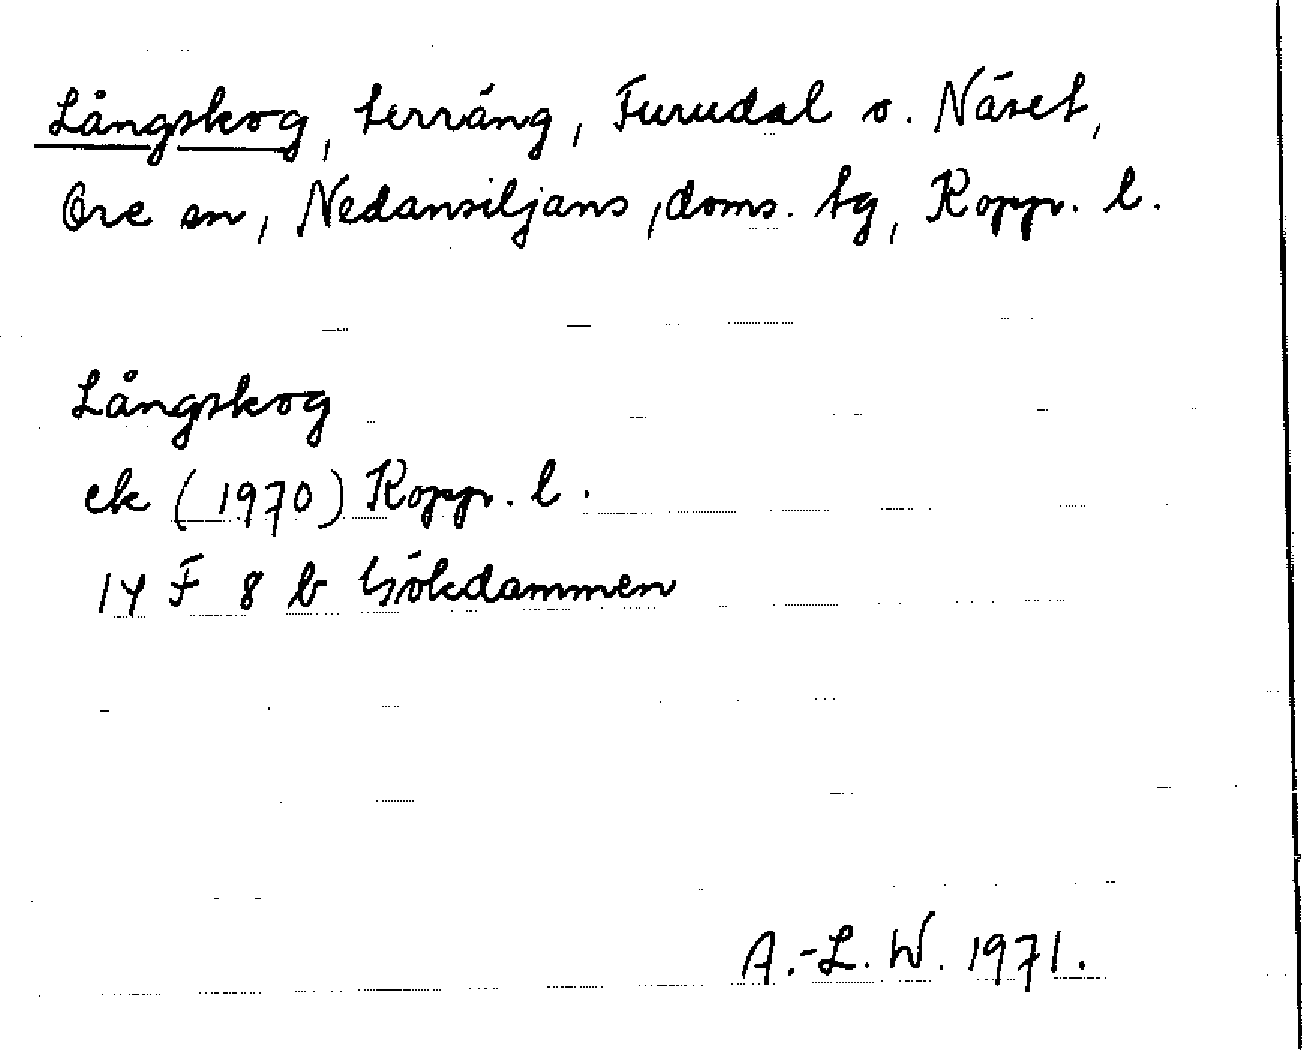 Långskog, terräng, Furudal o. Näset,
Ore sn, Nedansiljans, doms. tg, Kopp. l.
Långskog
ek (1970) Kopp. l.
14 F 8 b Gökdammen
A.-L. W. 1971.